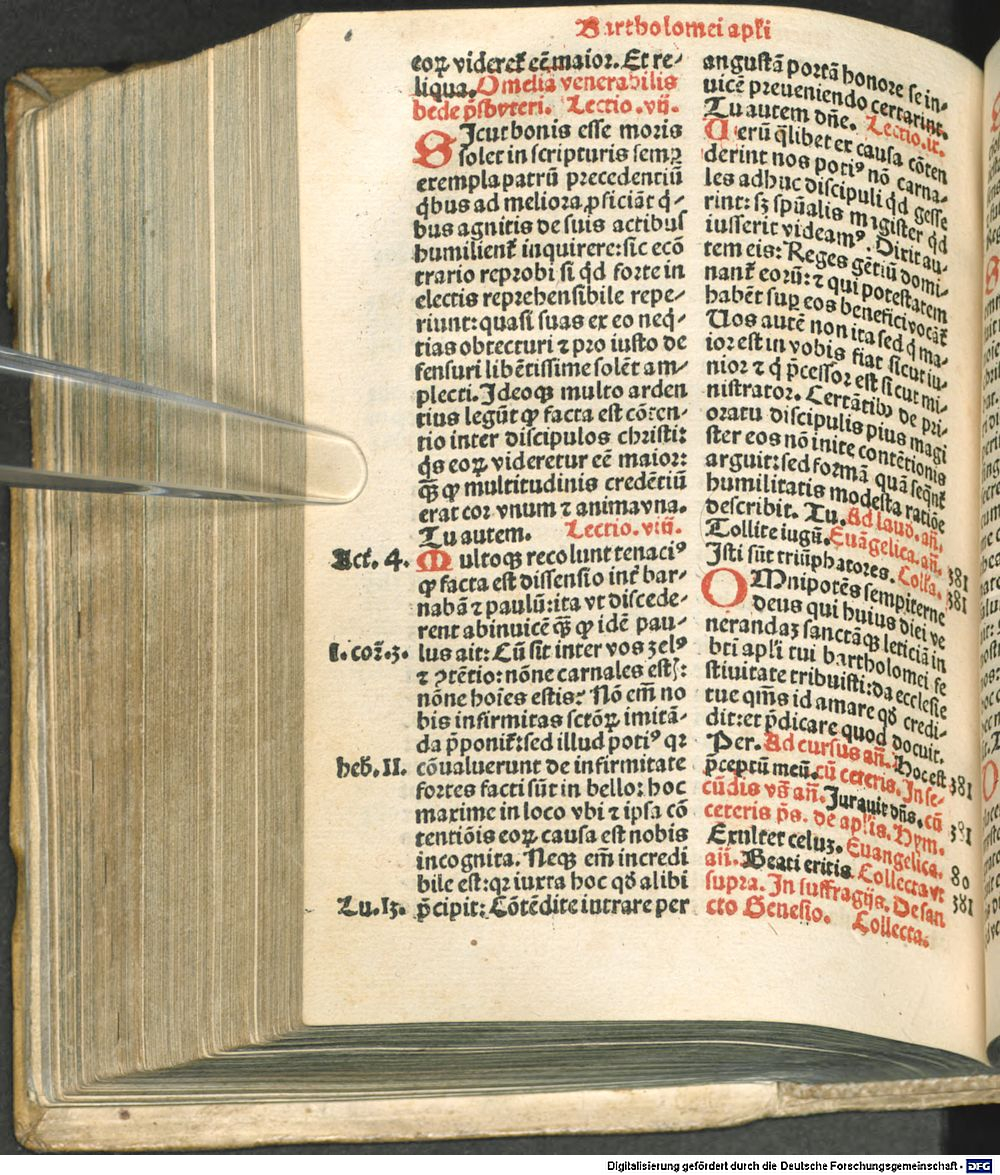 Bartholomei apl'i
eoꝝ videret᷑ eē maior. Et re⸗
liqua. Omelia venerabilis
bede p̄sbyteri. Lectio. vij.
SIcut bonis esse moris
solet in scripturis semꝑ
exempla patrū precedentiū
q̇bus ad meliora ꝓficiāt q̇⸗
bus agnitis de suis actibus
humilient᷑ inquirere: sic ecō
trario reprobi si qd̓ forte in
electis reprehensibile repe⸗
riunt: quasi suas ex eo neq̇⸗
tias obtecturi ⁊ pro iusto de
fensuri libētissime solēt am⸗
plecti. Ideoqꝫ multo arden
tius legūt ꝙ facta est cōten⸗
tio inter discipulos christi:
q̇s eoꝝ videretur eē maior:
q̄ꝫ ꝙ multitudinis credētiū
erat cor vnum ⁊ anima vna.
Tu autem. Lectio. viij.
Act᷑. 4. Multoqꝫ recolunt tenaciꝰ
ꝙ facta est dissensio int᷑ bar⸗
nabā ⁊ paulū: ita vt discede⸗
rent abinuicē q̄ꝫ ꝙ idē pau⸗
I. coꝝ. 3. lus ait: Cū sit inter vos zelꝰ
⁊ ꝯtētio: nōne carnales est{:
nōne hoīes estis? Nō em̄ no
bis infirmitas sctōꝝ imitā⸗
da p̄ponit᷑: sed illud potiꝰ qꝛ
heb̓. II. cōualuerunt de infirmitate
fortes facti sūt in bello: hoc
maxime in loco vbi ⁊ ipsa cō
tentiōis eoꝝ causa est nobis
incognita. Neqꝫ em̄ incredi
bile est: qꝛ iuxta hoc qd̓ alibi
Lu. 13. p̄cipit: Cōtēdite intrare per
angustā portā honore se in⸗
uicē preueniendo certarint.
Tu autem dn̄e. Lectio. ix.
Uerū q̇libet ex causa cōten
derint nos potiꝰ nō carna⸗
les adhuc discipuli qd̓ gesse
rint: sꝫ spūalis magister qd̓
iusserit videamꝰ. Dixit au⸗
tem eis: Reges gētiū domi⸗
nant᷑ eorū: ⁊ qui potestatem
habēt suꝑ eos benefici vocāt᷑
Uos autē non ita sed q̇ ma⸗
ior est in vobis fiat sicut iu⸗
nior ⁊ q̇ p̄cessor est sicut mi⸗
nistrator. Certātibꝰ de pri⸗
oratu discipulis pius magi
ster eos nō inite contētionis
arguit: sed formā quā seqn̄t᷑
humilitatis modesta ratiōe
describit. Tu. Ad laud. an̄.
Tollite iugū. Euāgelica. an̄. 381
Isti sūt triūphatores. Coll'a. 381
OMnipotēs sempiterne
deus qui huius diei ve
nerandaꝫ sanctāqꝫ leticiā in
bt̄i apl'i tui bartholomei fe
stiuitate tribuisti: da ecclesie
tue qm̄s id amare qd̓ credi⸗
dit: et p̄dicare quod docuit.
Per. Ad cursus an̄. Hoc est 381
p̄ceptū meū. cū ceteris. In se⸗
cūdis vs̄ an̄. Jurauit dn̄s. cū 381
ceteris p̄s. de apl'is. Hym.
Exultet celuꝫ. Euangelica. 80
an̄. Beati eritis. Collecta vt 381
supra. In suffragijs. De san
cto Genesio. Collecta.
Digitalisierung gefördert durch die Deutsche Forschungsgemeinschaft - DFG